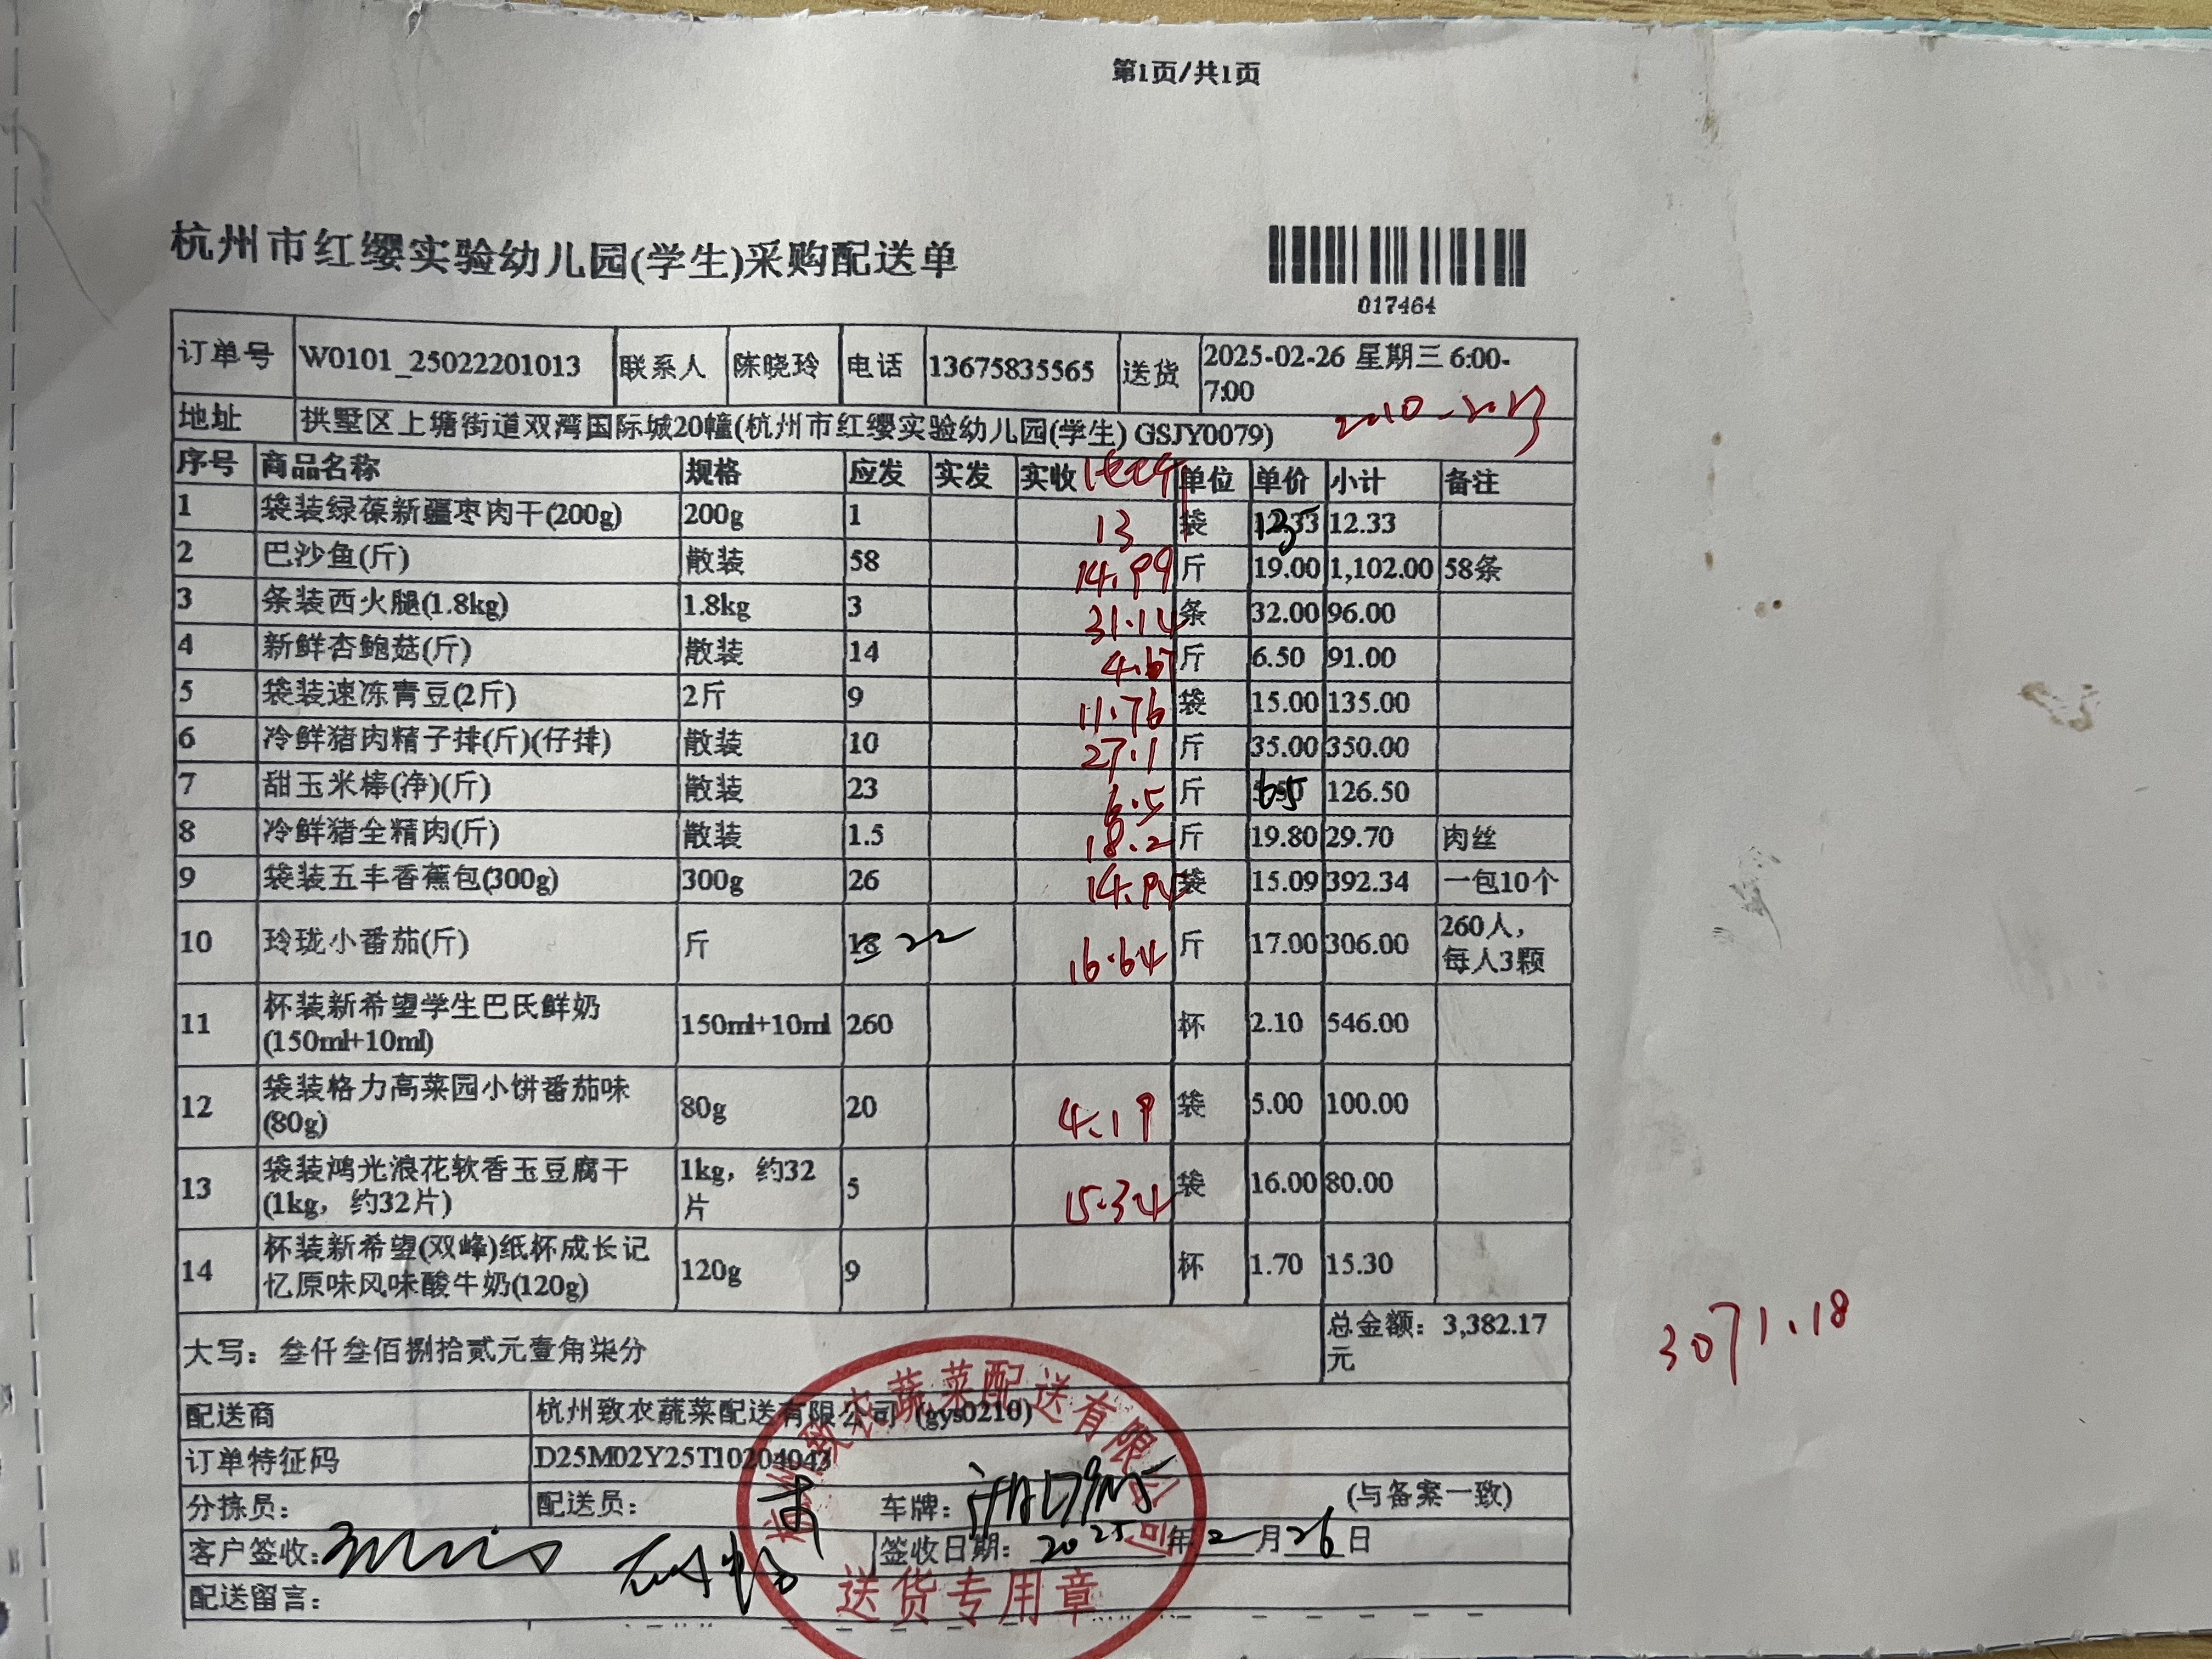 第1页/共1页
杭州市红缨实验幼儿园(学生)采购配送单
017464
订单号 W0101_25022201013 联系人 陈晓玲 电话 13675835565 送货 2025-02-26 星期三 6:00-
7:00
地址 拱墅区上塘街道双湾国际城20幢(杭州市红缨实验幼儿园(学生) GSJY0079)
序号 商品名称 规格 应发 实发 实收 单位 单价 小计 备注
1 袋装绿葆新疆枣肉干(200g) 200g 1 13 袋 12.33 13 12.33
2 巴沙鱼(斤) 散装 58 14.99 斤 19.00 1,102.00 58条
3 条装西火腿(1.8kg) 1.8kg 3 条 32.00 96.00
4 新鲜杏鲍菇(斤) 散装 14 4.67 斤 6.50 91.00
5 袋装速冻青豆(2斤) 2斤 9 11.76 袋 15.00 135.00
6 冷鲜猪肉精子排(斤)(仔排) 散装 10 27.1 斤 35.00 350.00
7 甜玉米棒(净)(斤) 散装 23 6.5 斤 5.50 65 126.50
8 冷鲜猪全精肉(斤) 散装 1.5 18.2 斤 19.80 29.70 肉丝
9 袋装五丰香蕉包(300g) 300g 26 袋 15.09 392.34 一包10个
10 玲珑小番茄(斤) 斤 18 22 16.64 斤 17.00 306.00 260人，
每人3颗
11 杯装新希望学生巴氏鲜奶
(150ml+10ml) 150ml+10ml 260 杯 2.10 546.00
12 袋装格力高菜园小饼番茄味
(80g) 80g 20 4.19 袋 5.00 100.00
13 袋装鸿光浪花软香玉豆腐干
(1kg，约32片) 1kg，约32
片 5 15.34 袋 16.00 80.00
14 杯装新希望(双峰)纸杯成长记
忆原味风味酸牛奶(120g) 120g 9 杯 1.70 15.30
大写：叁仟叁佰捌拾贰元壹角柒分 总金额：3,382.17
元
3071.18
配送商 杭州致农蔬菜配送有限公司 (gys0210)
订单特征码 D25M02Y25T10204043
分拣员： 配送员： 车牌： (与备案一致)
客户签收： 签收日期：2025年2月26日
配送留言：
杭州致农蔬菜配送有限公司
送货专用章